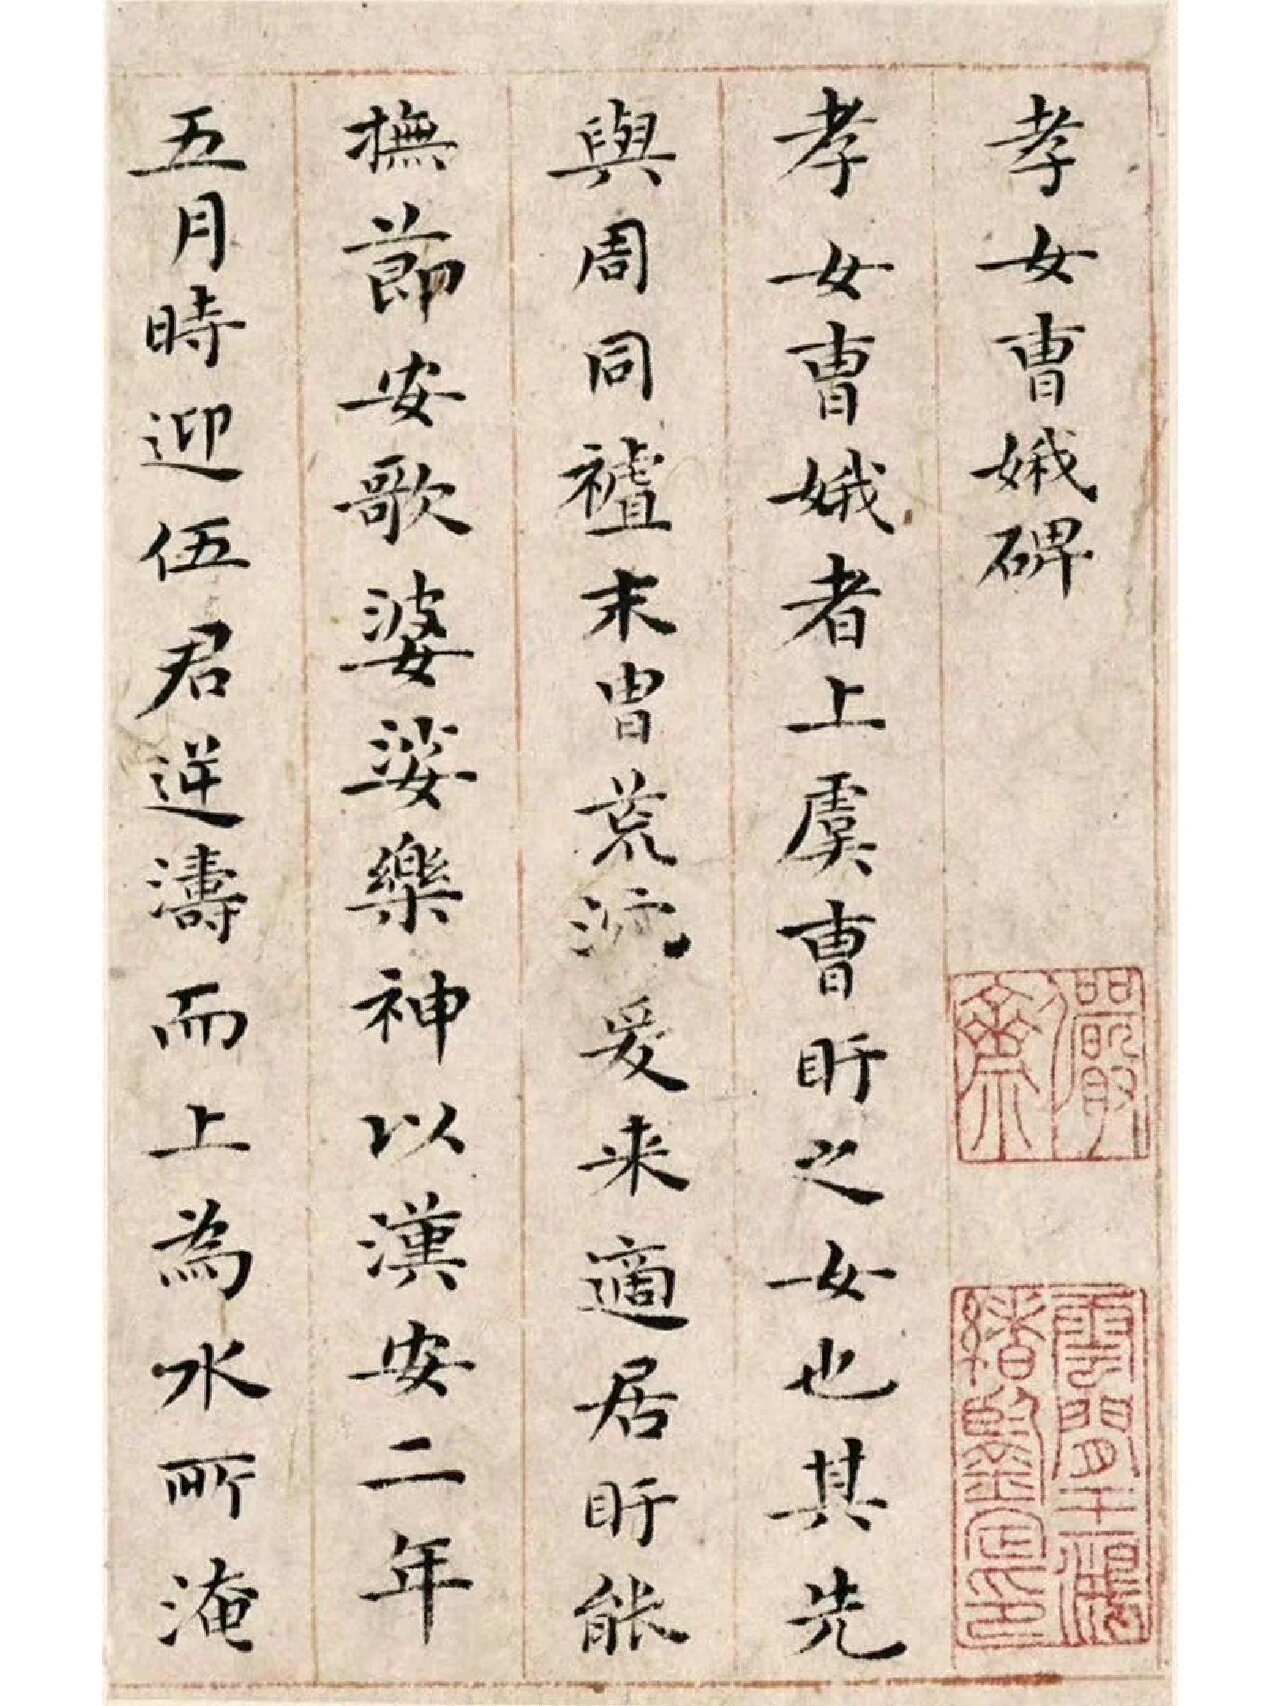 孝女曹娥碑
孝女曹娥者上虞曹盱之女也其先
與周同末胄荒流爰来適居盱能
撫節安歌婆娑樂神以漢安二年
五月時迎伍君逆濤而上為水所淹
儼齋
雲間王鴻緒鑒定印